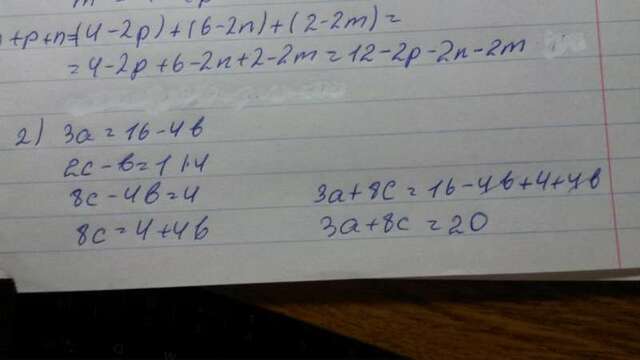 +p+n=(4-2p)+(6-2n)+(2-2m)=
=4-2p+6-2n+2-2m=12-2p-2n-2m
2) 3a=16-4b
2c-b=1 |·4
8c-4b=4
8c=4+4b
3a+8c=16-4b+4+4b
3a+8c=20